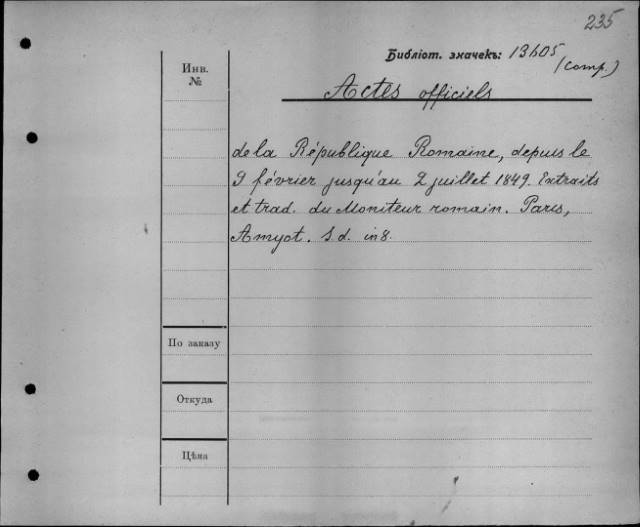 235
Библіот. значекъ: 13605
(Comp.)
Инв.
№
Actes officiels
de la République Romaine, depuis le
9 février jusqu'au 2 juillet 1849. Extraits
et trad. du Moniteur romain. Paris,
Amyot. S. d. in 8.
По заказу
Откуда
Цѣна